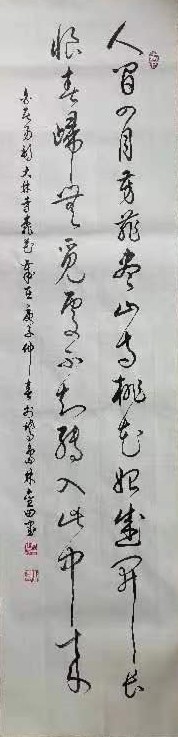 人間四月芳菲盡山寺桃花始盛開長
恨春歸無覓處不知轉入此中來
白居易詩大林寺桃花歲在庚子仲春於島林金田書